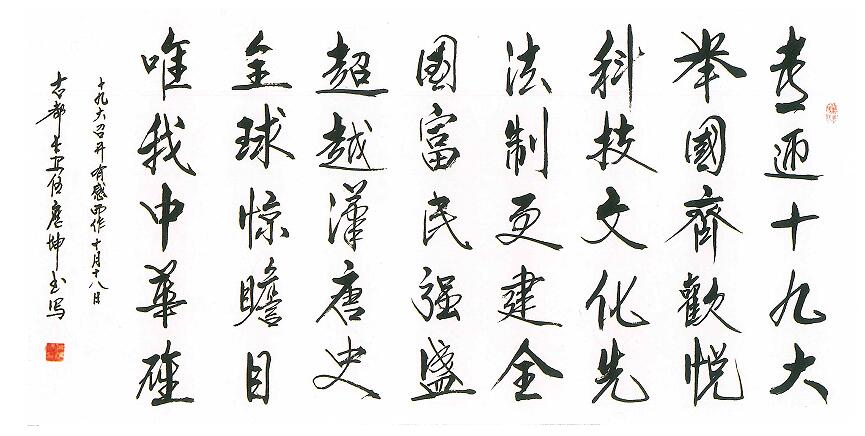 喜迎十九大
举國齊歡悦
科技文化先
法制更建全
国富民强盛
超越漢唐史
全球惊瞻目
唯我中華雄
十九大召开有感而作十月十八日
古都 坤书写